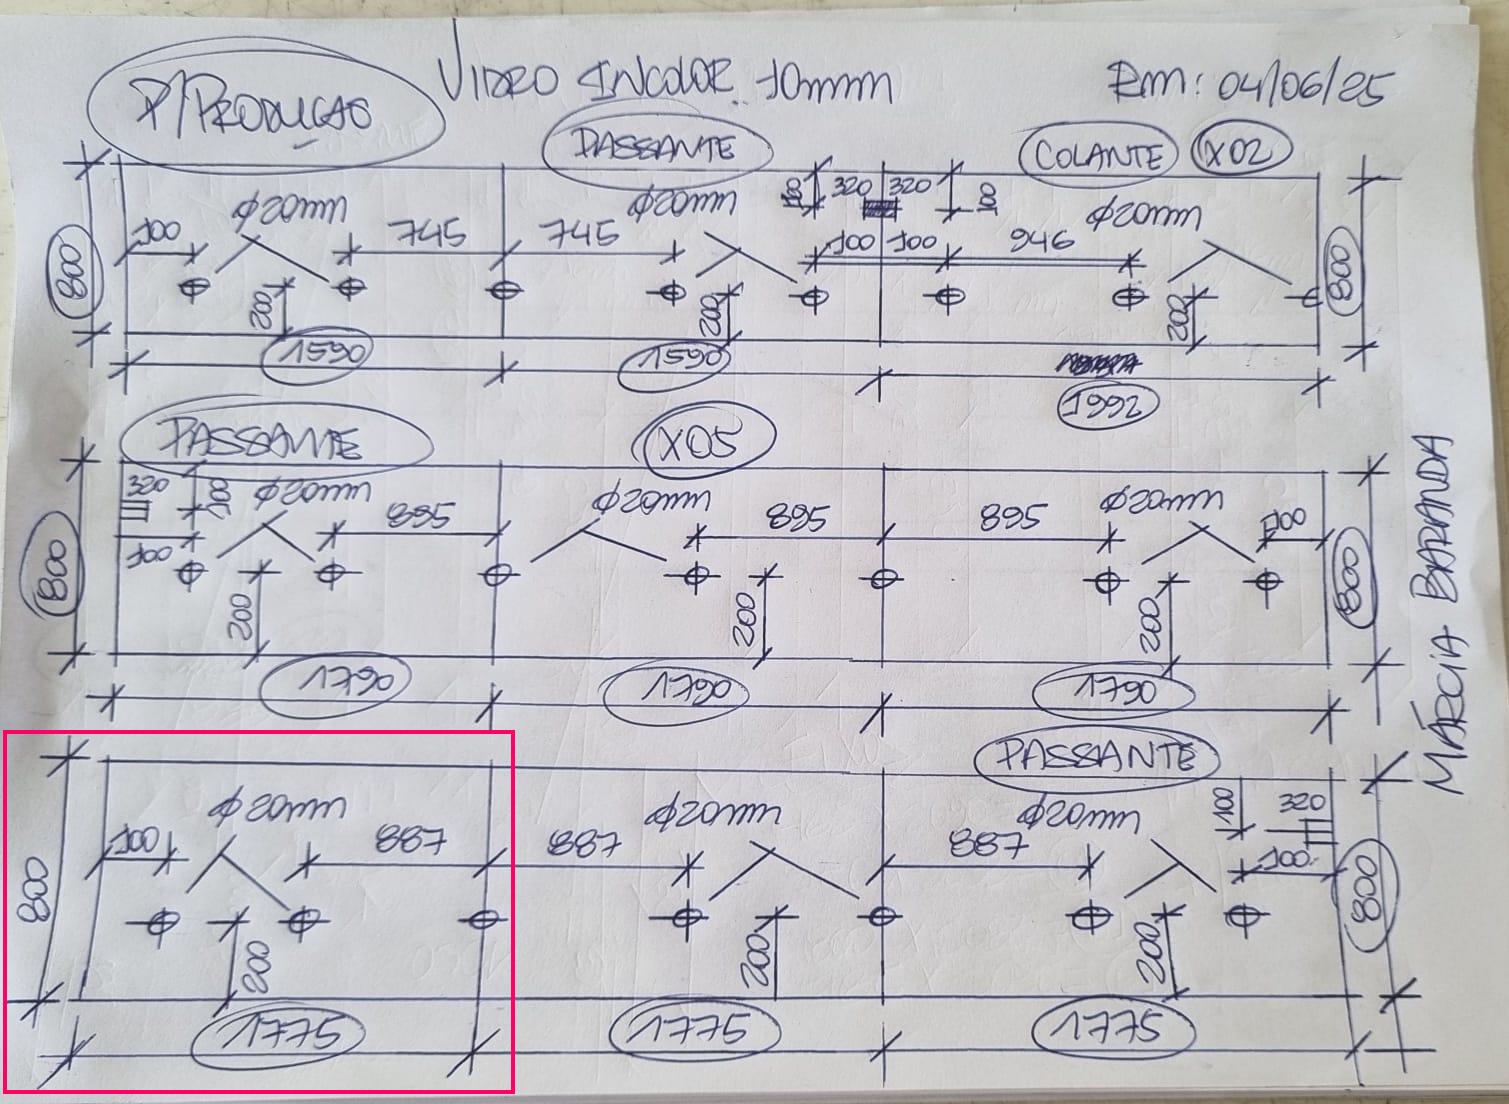 P/PRODUÇÃO
VIDRO INCOLOR 10mm
RM: 04/06/25
PASSANTE
COLANTE
X02
800
100
ϕ20mm
745
745
ϕ20mm
100
320
320
100
100
100
946
ϕ20mm
800
200
200
200
1590
1590
1992
PASSANTE
X05
800
320
100
100
ϕ20mm
895
ϕ20mm
895
895
ϕ20mm
100
800
200
200
200
1790
1790
1790
MÁRCIA BARANDA
PASSANTE
800
100
ϕ20mm
887
887
ϕ20mm
887
ϕ20mm
100
320
100
800
200
200
200
1775
1775
1775